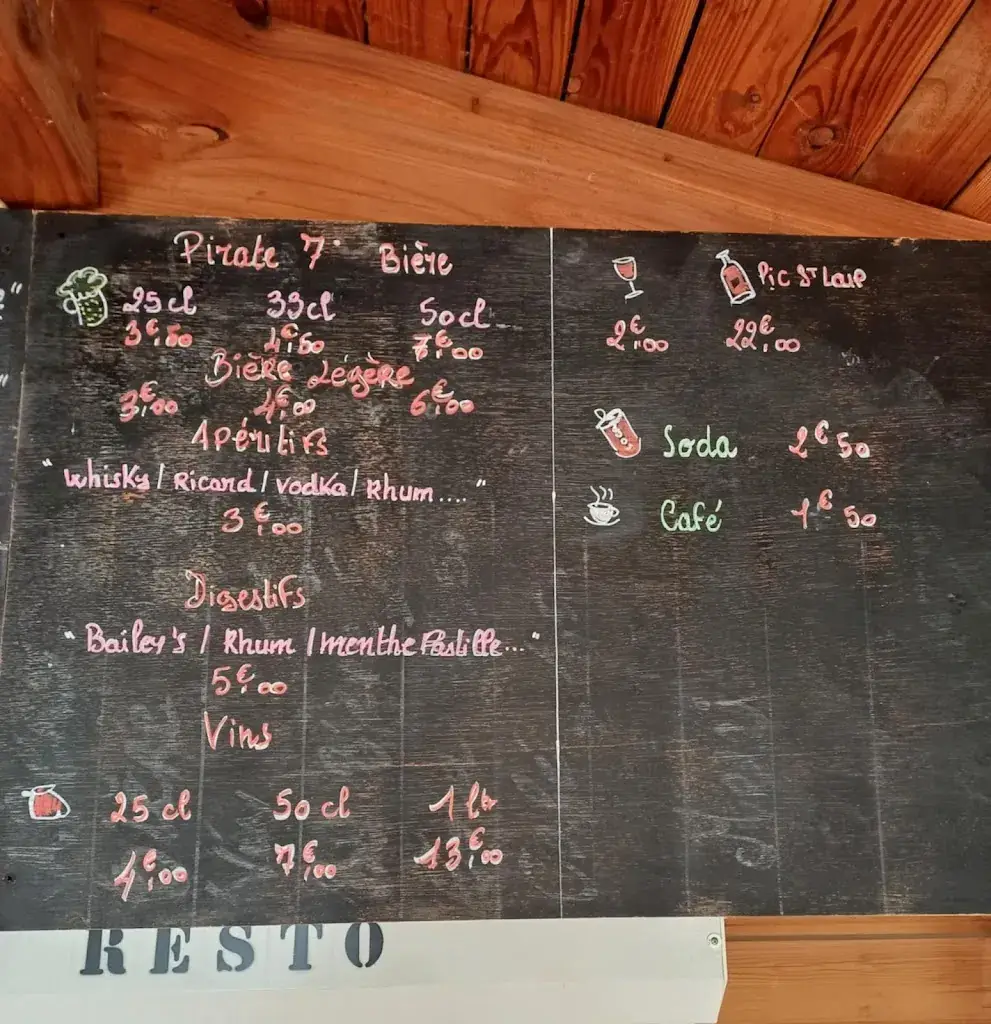 Pirate 7° Bière
25cl 33cl 50cl
3€,50 4€,50 7€,00
Bière Légère
3€,00 4€,00 6€,00
Apéritifs
"Whisky / Ricard / Vodka / Rhum...."
3€,00
Digestifs
"Bailey's / Rhum / menthe Pastille..."
5€,00
Vins
25 cl 50 cl 1 ltr
4€,00 7€,00 13€,00
Pic St Loup
2€,00 22€,00
Soda 2€50
Café 1€50
RESTO